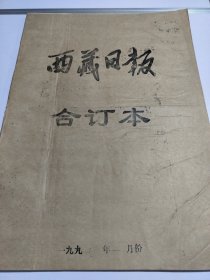 西藏日报
合订本
一九九 年 月份